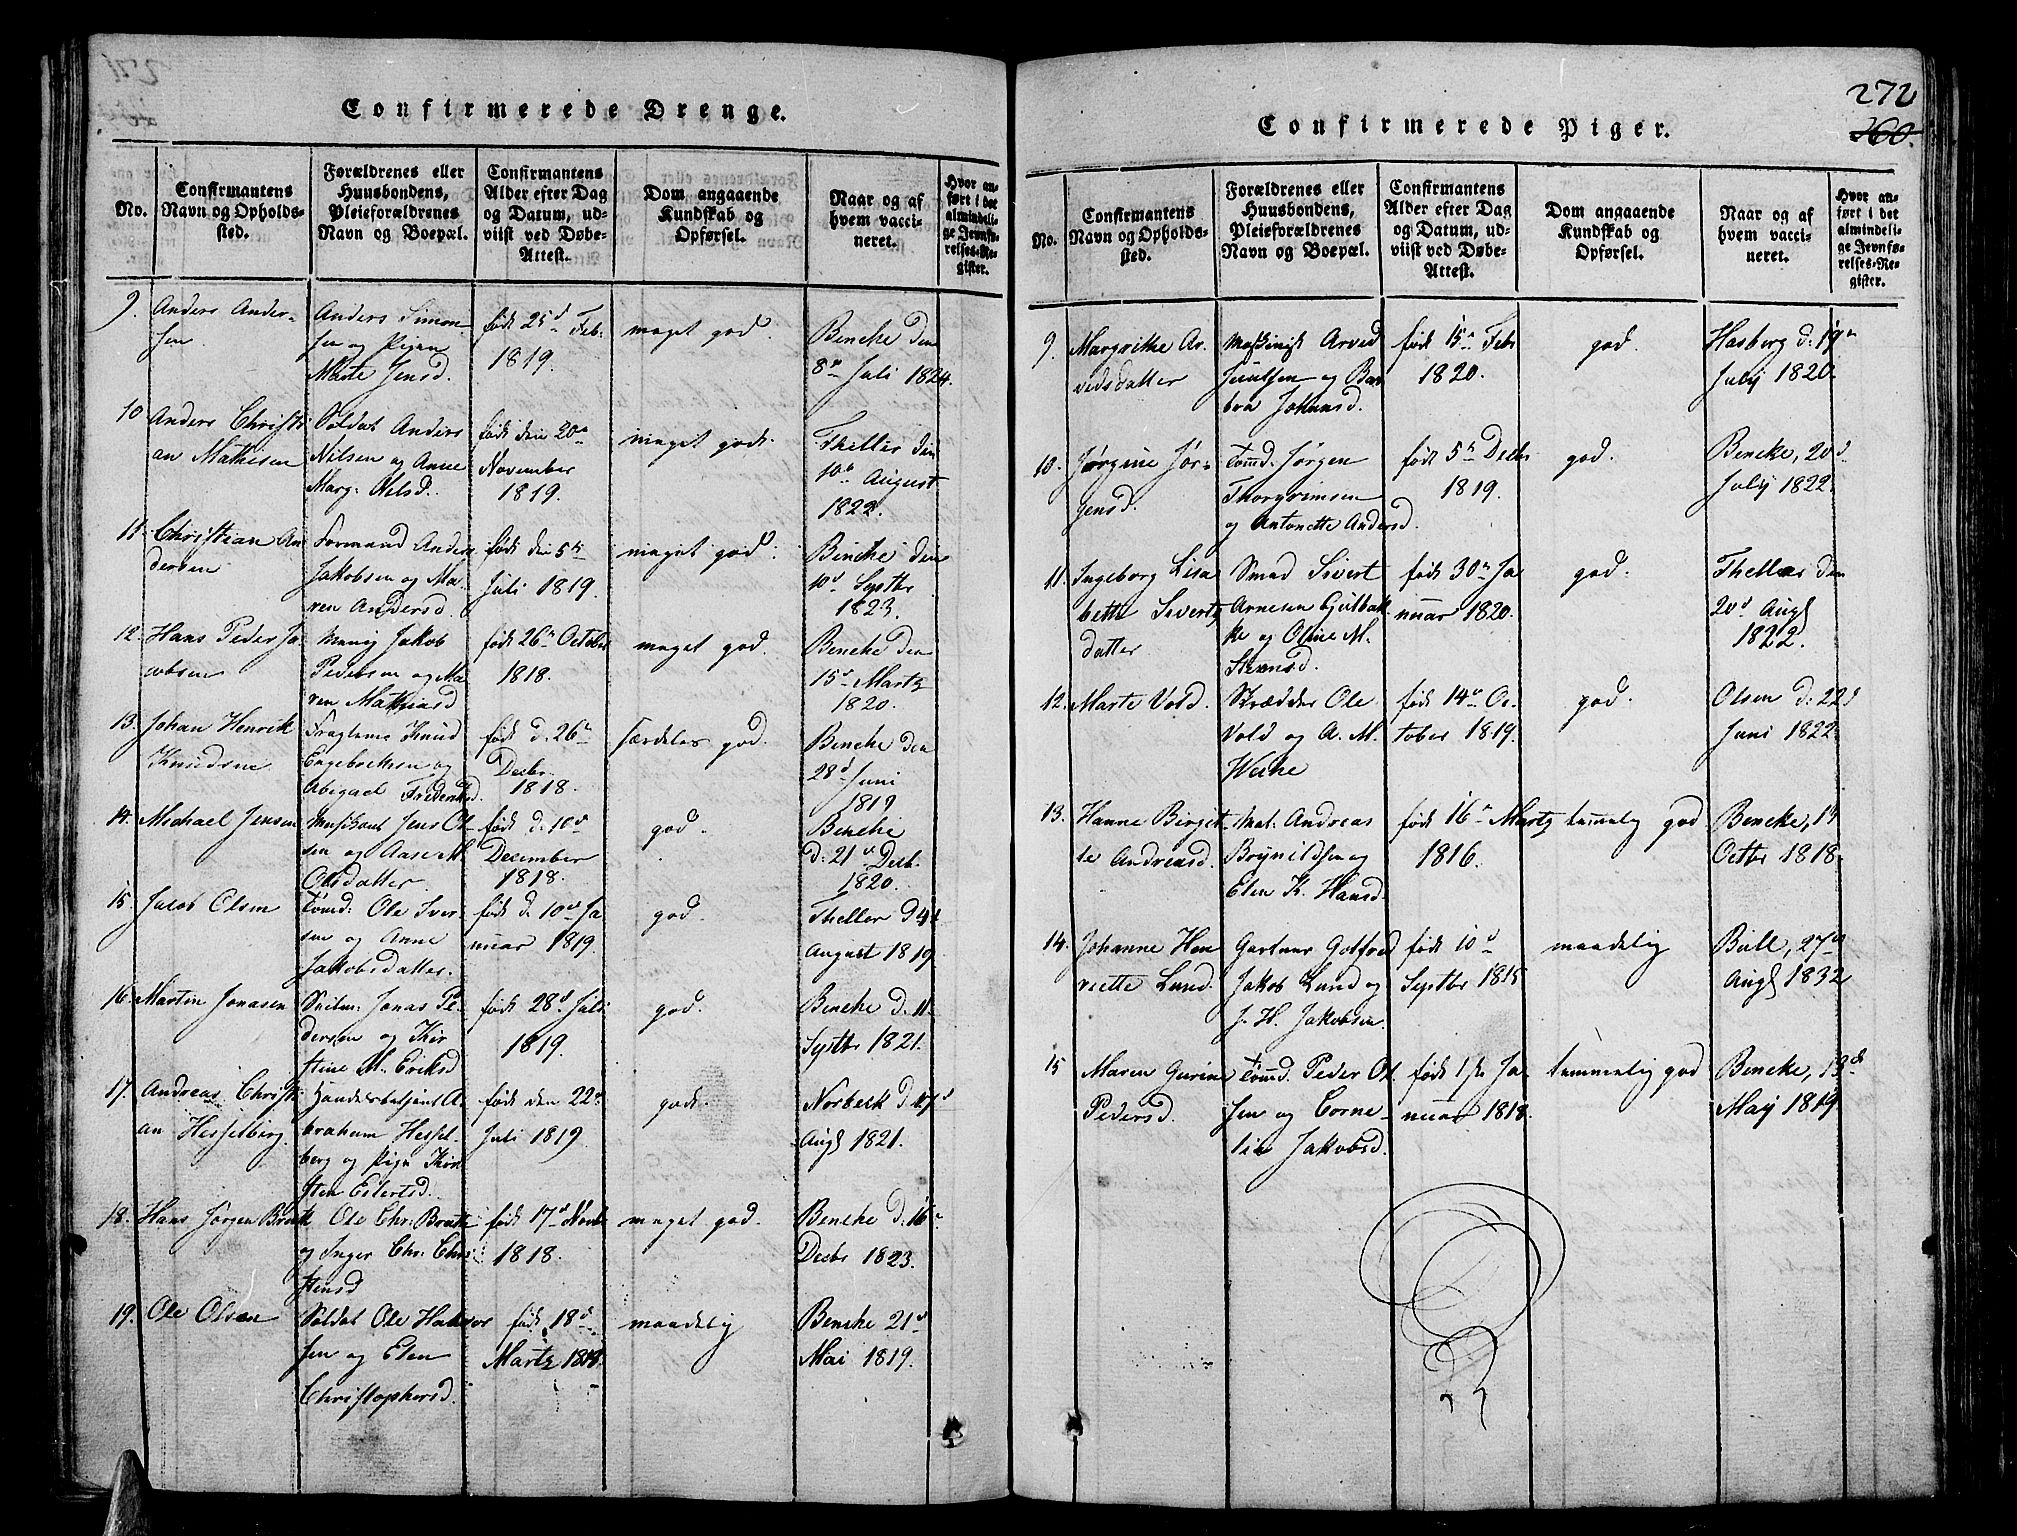 Confirmerede Drenge.
No.
Confirmantens Navn og Opholdssted.
Forældrenes eller Huusbondens, Pleieforældrenes Navn og Boepæl.
Confirmantens Alder efter Dag og Datum, udviist ved Døbe-Attest.
Dom angaaende Kundskab og Opførsel.
Naar og af hvem vaccineret.
Hvor anført i det almindelige Jevnførelses-Register.
9. Anders Ander-
sen.
Anders Simon-
sen og Pigen
Marte Jensd.
født 25d Feb.
1819.
meget god.
Bencke den
8de Juli 1824.
10 Anders Christi
an Mathisen
Soldat Anders
Nilsen og Anne
Marg: Nilsd.
født den 20n
November
1819.
meget god.
Theller den
10de August
1822.
11. Christian An
dersen
Formand Anders
Jakobsen og Ma-
ren Andersd
født den 5te
Juli 1819.
meget god.
Bencke den
10d Septbr
1823.
12. Hans Peder Ja
cobsen
Jakob
Pedersen og Ma
ren Mathiasd
født 26n October
1818.
meget god.
Bencke den
15d Martz
1820.
13. Johan Henrik
Knudsen
Knud
Engebretsen og
Abigael Frederiksd.
født d. 26n
Decbr.
1818.
særdeles god.
Bencke den
28d Juni
1819
14. Michael Jensen
Musikant Jens Ol-
sen og Aase M.
Olsdatter.
født d. 10d
December
1818.
god.
Bencke
d: 21d Decb.
1820.
15. Jacob Olsen
Tømd: Ole Iver-
sen og Anne
Jakobsdatter.
født d. 10d Ja
nuar 1819.
god.
Theller d 4de
August 1819.
16. Martin Jonasen
Jonas Pe-
dersen og Kir
stine M. Eriksd
født 28d Juli
1819.
god.
Bencke d. 11.
Septbr 1821.
17. Andreas Christi
an Hesselberg.
Handelsbetjent A-
braham Hessel-
berg og Pige Kir
sten Eilertsd.
født den 22d
Juli 1819
god.
Norbeck d. 17d
Augs 1821.
18. Hans Jørgen Brink
Ole Chr.
og Inger Chr. Chri
stensd
født 17d Novb.
1818.
meget god.
Bencke d. 16n
Decbr 1823.
19. Ole Olsen
Soldat Ole Halvor
sen og Elen
Christophersd.
født 18d
Martz 1818.
maadelig
Bencke 21d
Mai 1819.
272
360.
Confirmerede Piger.
No.
Confirmantens Navn og Opholdssted.
Forældrenes eller Huusbondens, Pleieforældrenes Navn og Boepæl.
Confirmantens Alder efter Dag og Datum, udviist ved Døbe-Attest.
Dom angaaende Kundskab og Opførsel.
Naar og af hvem vaccineret.
Hvor anført i det almindelige Jevnførelses-Register.
9. Margrethe Ar-
vedsdatter
Maskinist Arved
Knutsen og Bar
bra Johansd.
født 15n Feb
1820.
god.
Hasberg d: 19n
July 1820.
10. Jørgine Jør-
gensd.
Tømd. Jørgen
Thorgrimsen
og Antonette Andersd.
født 5te Decbr
1819.
god.
Bencke, 20d
July 1822.
11. Ingeborg Lisa
beth Siverts
datter
Smed Sivert
Arnesen Gulbak
ke og Oline M.
Stensd.
født 30n Ja
nuar 1820.
god.
Theller den
20d Augs
1822.
12. Marte Vold.
Skrædder Ole
Vold og A. M.
født 14d Oc
tober 1819.
god.
Olsen d: 22d
Juni 1822.
13. Hanne Birgit-
te Andreasd.
Mat. Andreas
Brynildsen og
Elen K. Hansd.
født 16n Martz
1816.
temmelig god
Bencke, 19
Octbr 1818.
14. Johanne Hen
riette Lund.
Gartner Gotfred
Jakob Lund og
J. H. Jakobsen.
født 10d
Septbr 1815
maadelig
Bull, 27n
Augs 1832
15 Maren Gurine
Pedersd.
Tømd. Peder Ol-
sen og Corne-
lia Jakobsd.
født 1ste Ja
nuar 1818.
temmelig god
Bencke, 13de
May 1819.